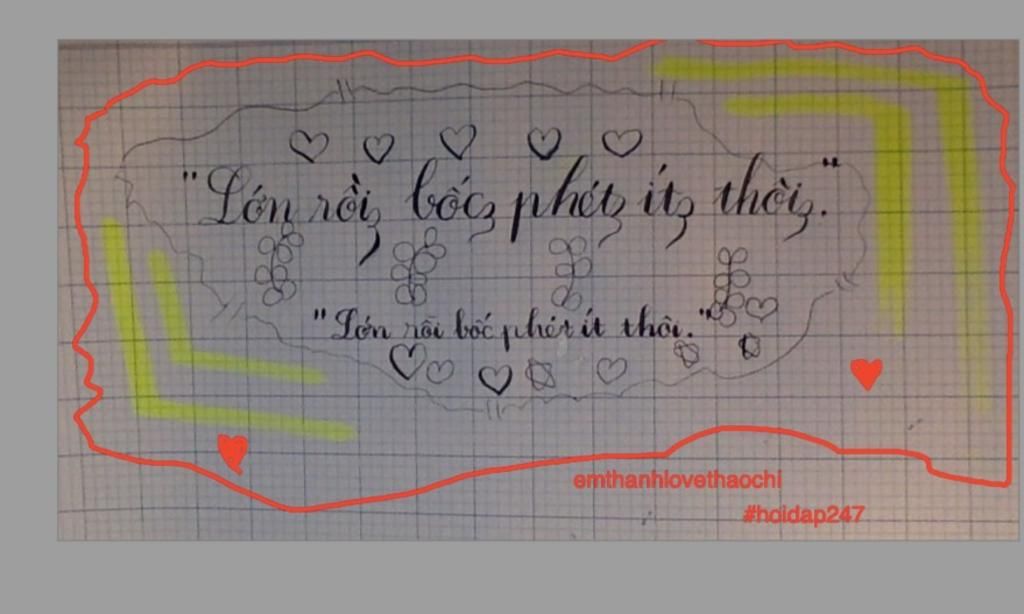 "Lớn rồi bốc phét ít thôi."
"Lớn rồi bốc phét ít thôi."
emthanhlovethaochi
#hoidap247